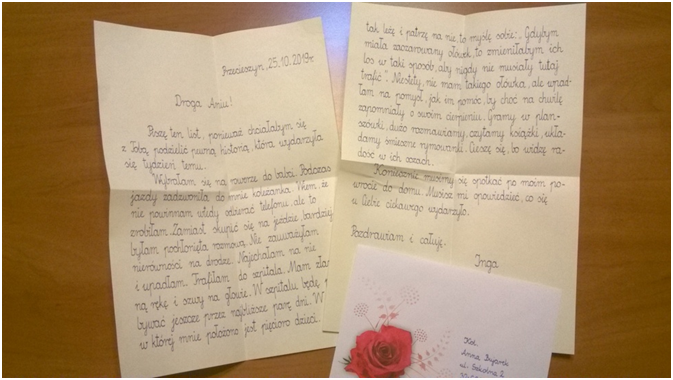 Przecieszyn, 25.10.2019r.
Droga Aniu!
Piszę ten list, ponieważ chciałabym się
z Tobą podzielić pewną historią, która wydarzyła
się tydzień temu.
Wybrałam się na rowerze do babci. Podczas
jazdy zadzwoniła do mnie koleżanka. Wiem, że
nie powinnam wtedy odbierać telefonu, ale to
zrobiłam. Zamiast skupić się na jeździe, bardziej
byłam pochłonięta rozmową. Nie zauważyłam
nierówności na drodze. Najechałam na nie
i upadłam. Trafiłam do szpitala. Mam zła
ną rękę i szwy na głowie. W szpitalu będę
bywać jeszcze przez najbliższe parę dni. W
w której mnie położono jest pięcioro dzieci.
tak leżę i patrzę na nie, to myślę sobie: „Gdybym
miała zaczarowany ołówek, to zmieniłabym ich
los w taki sposób, aby nigdy nie musiały tutaj
trafić". Niestety, nie mam takiego ołówka, ale wpad-
łam na pomysł, jak im pomóc, by choć na chwilę
zapomniały o swoim cierpieniu. Gramy w plan-
szówki, dużo rozmawiamy, czytamy książki, ukła-
damy śmieszne rymowanki. Cieszę się, bo widzę ra-
dość w ich oczach.
Koniecznie musimy się spotkać po moim po-
wrocie do domu. Musisz mi opowiedzieć, co się
u Ciebie ciekawego wydarzyło.
Pozdrawiam i całuję.
Inga
Anna
ul. Szkolna 2